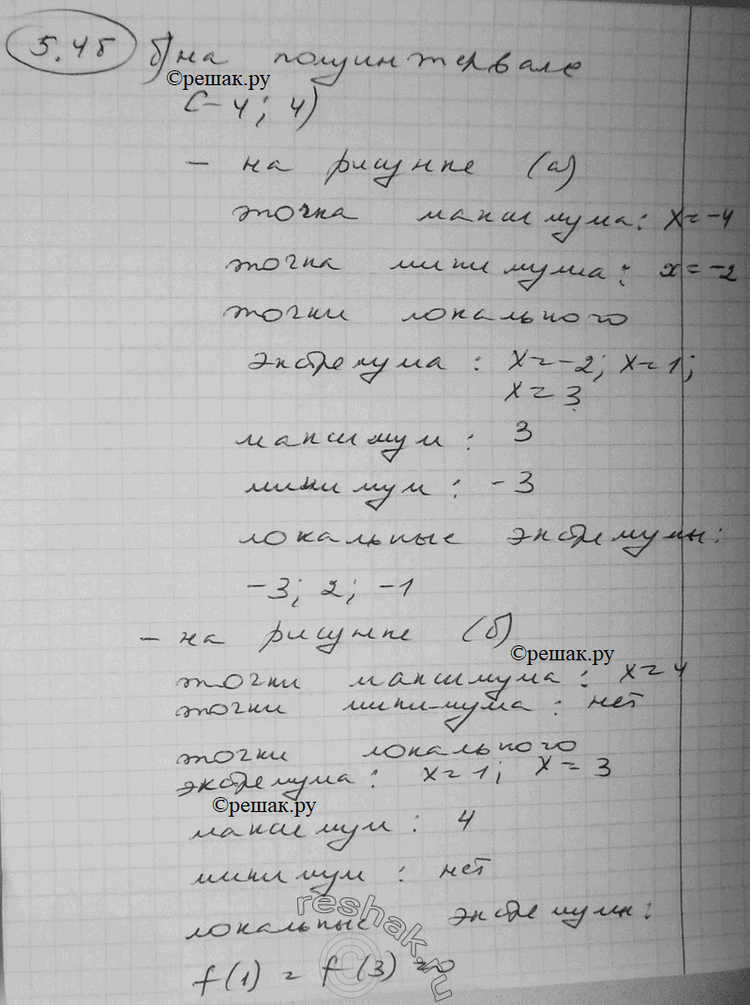 5.4б б) на полуинтервале
©решак.ру
[-4; 4)
- на рисунке (а)
точка максимума: x=-4
точка минимума: x=-2
точки локального
экстремума: x=-2; x=1;
x=3
максимум: 3
минимум: -3
локальные экстремумы:
-3; 2; -1
- на рисунке (б)
©решак.ру
точки максимума: x=4
точки минимума: нет
точки локального
экстремума: x=1; x=3
©решак.ру
максимум: 4
минимум: нет
reshak.ru
локальные экстремумы:
f(1) = f(3) =